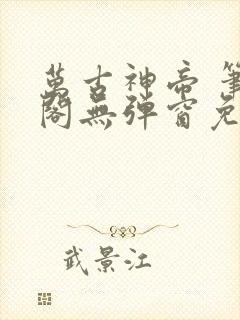 萬古神帝 筆
閣無彈窗免
武景江